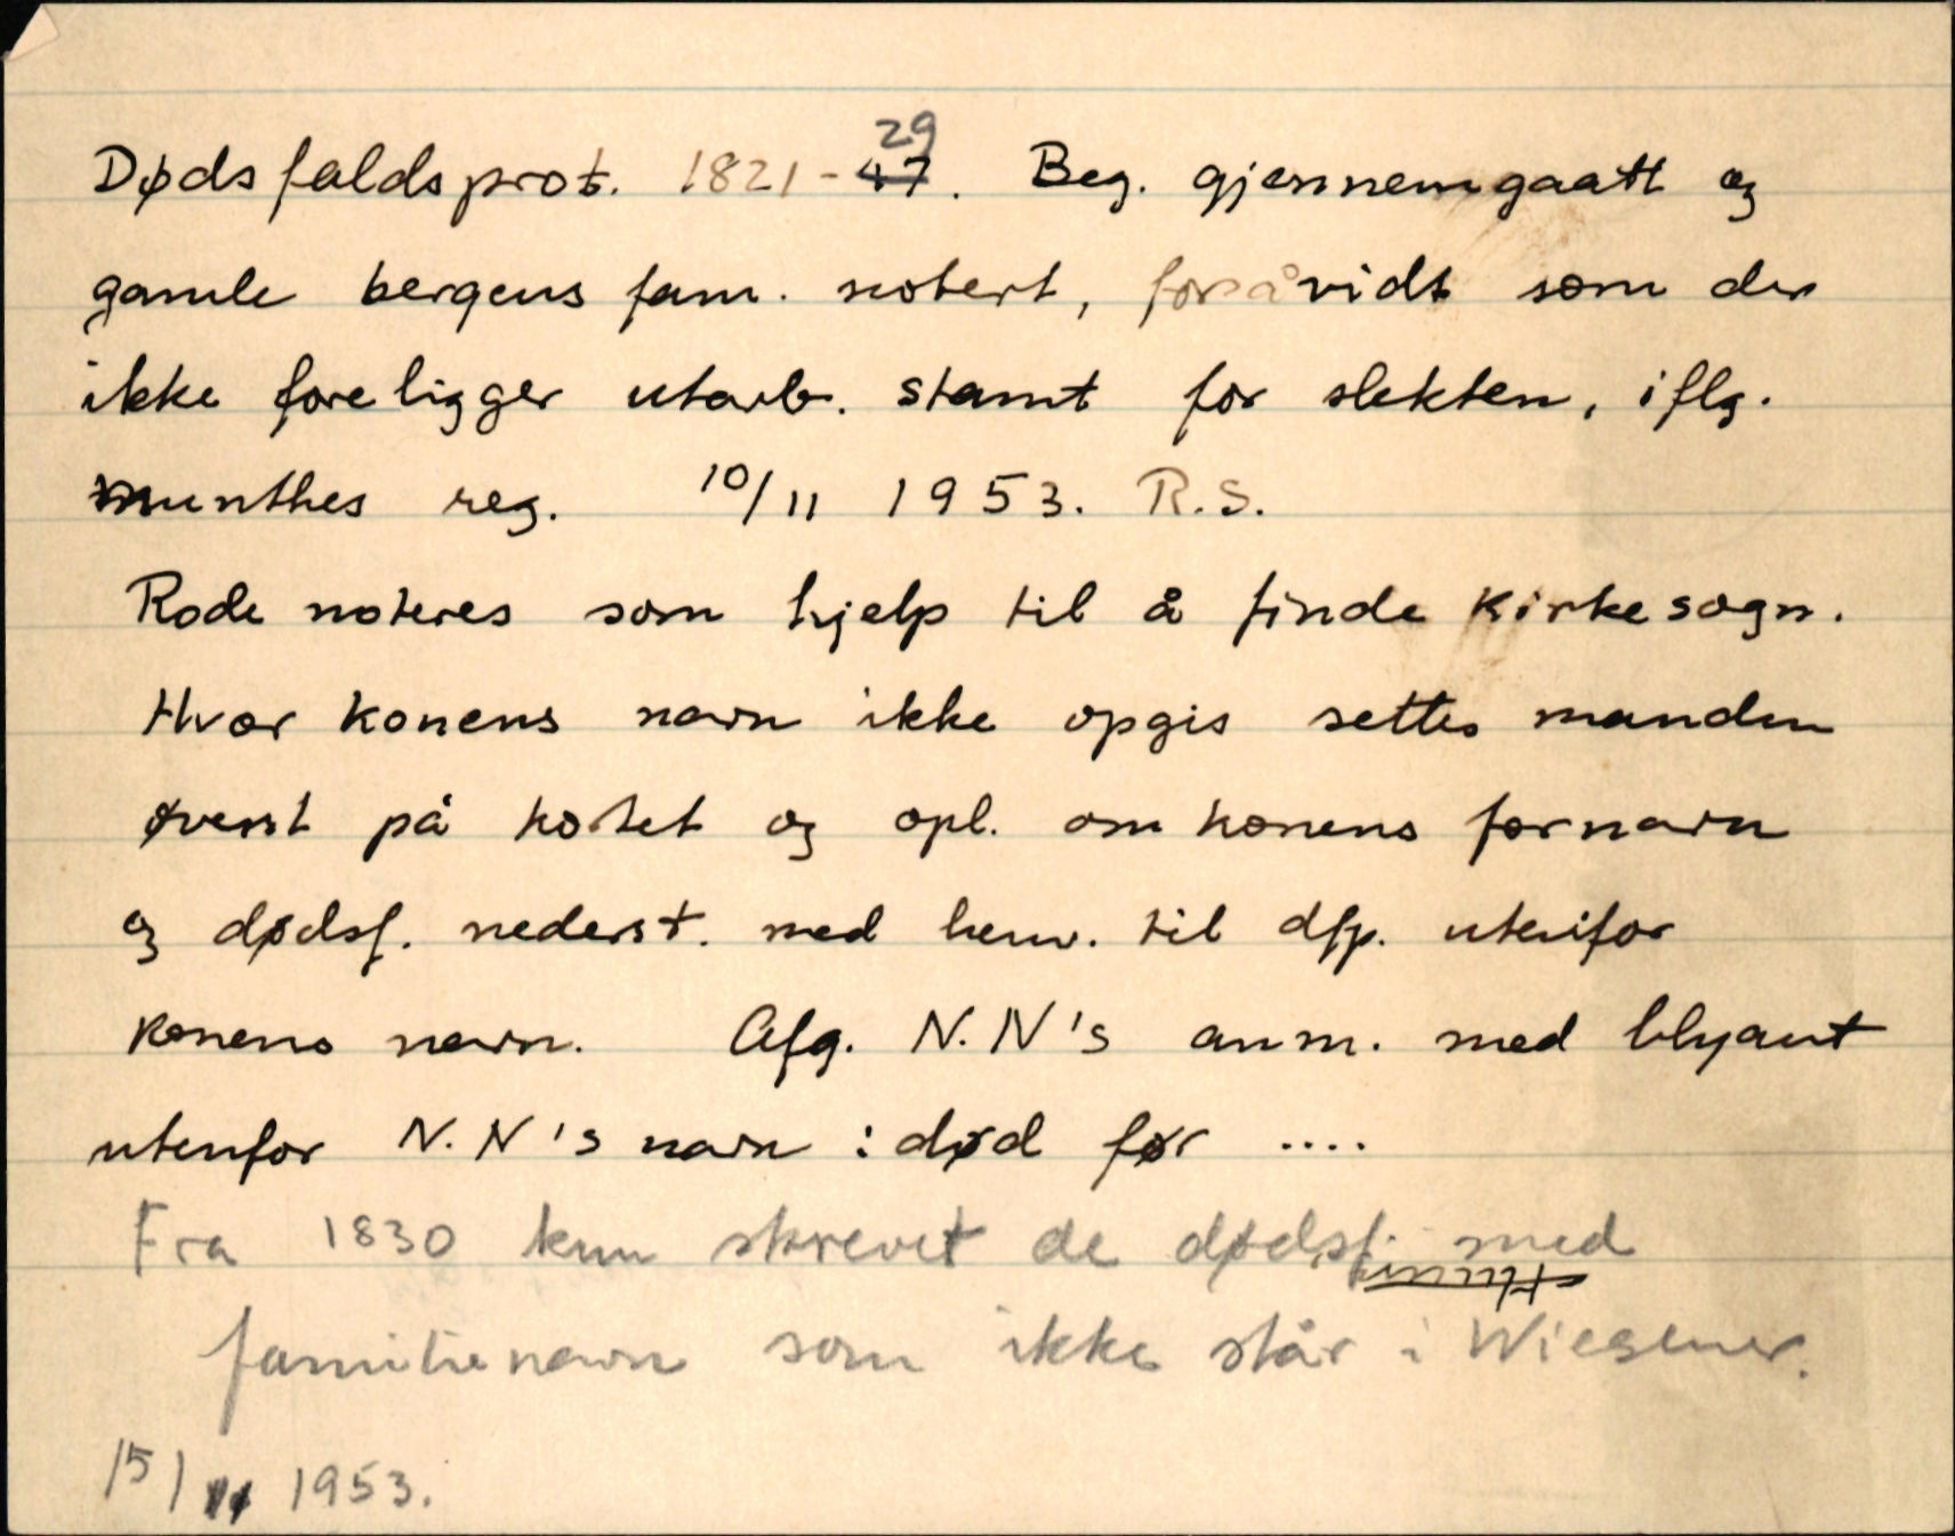 Dødsfaldsprot. 1821-47. 29 Beg. gjennemgaatt og
gamle bergens fam. notert, forsåvidt som der
ikke foreligger utarb. stamt for slekten, iflg.
Munthes reg. 10/11 1953. R.S.
Rode noteres som hjelp til å finde Kirkesogn.
Hvor konens navn ikke opgis settes manden
øverst på kortet og opl. om konens fornavn
og dødsf. nederst. med henv. til dfp. utenfor
konens navn. Afg. N.N's anm. med blyant
utenfor N.N's navn : død før ....
Fra 1830 kun skrevet de dødsf. med
familienavn som ikke står i Wiesener.
15/11 1953.